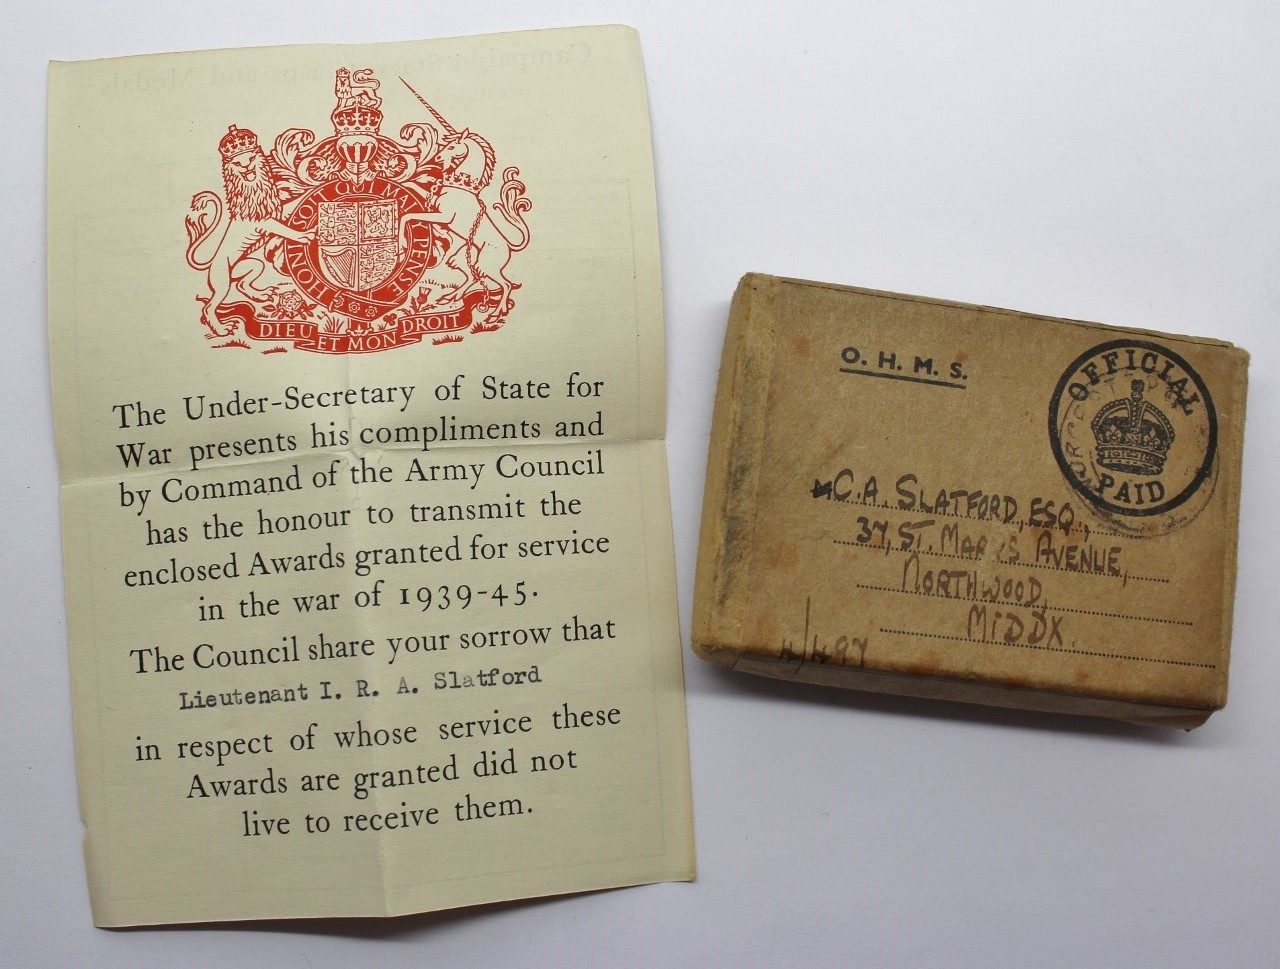 HONI SOIT QUI MAL Y PENSE
DIEU ET MON DROIT
The Under-Secretary of State for
War presents his compliments and
by Command of the Army Council
has the honour to transmit the
enclosed Awards granted for service
in the war of 1939-45.
The Council share your sorrow that
Lieutenant I. R. A. Slatford
in respect of whose service these
Awards are granted did not
live to receive them.
O. H. M. S.
OFFICIAL
PAID
C.A. SLATFORD, ESQ.,
37, ST. MARYS AVENUE,
NORTHWOOD,
MIDDX.
4/497